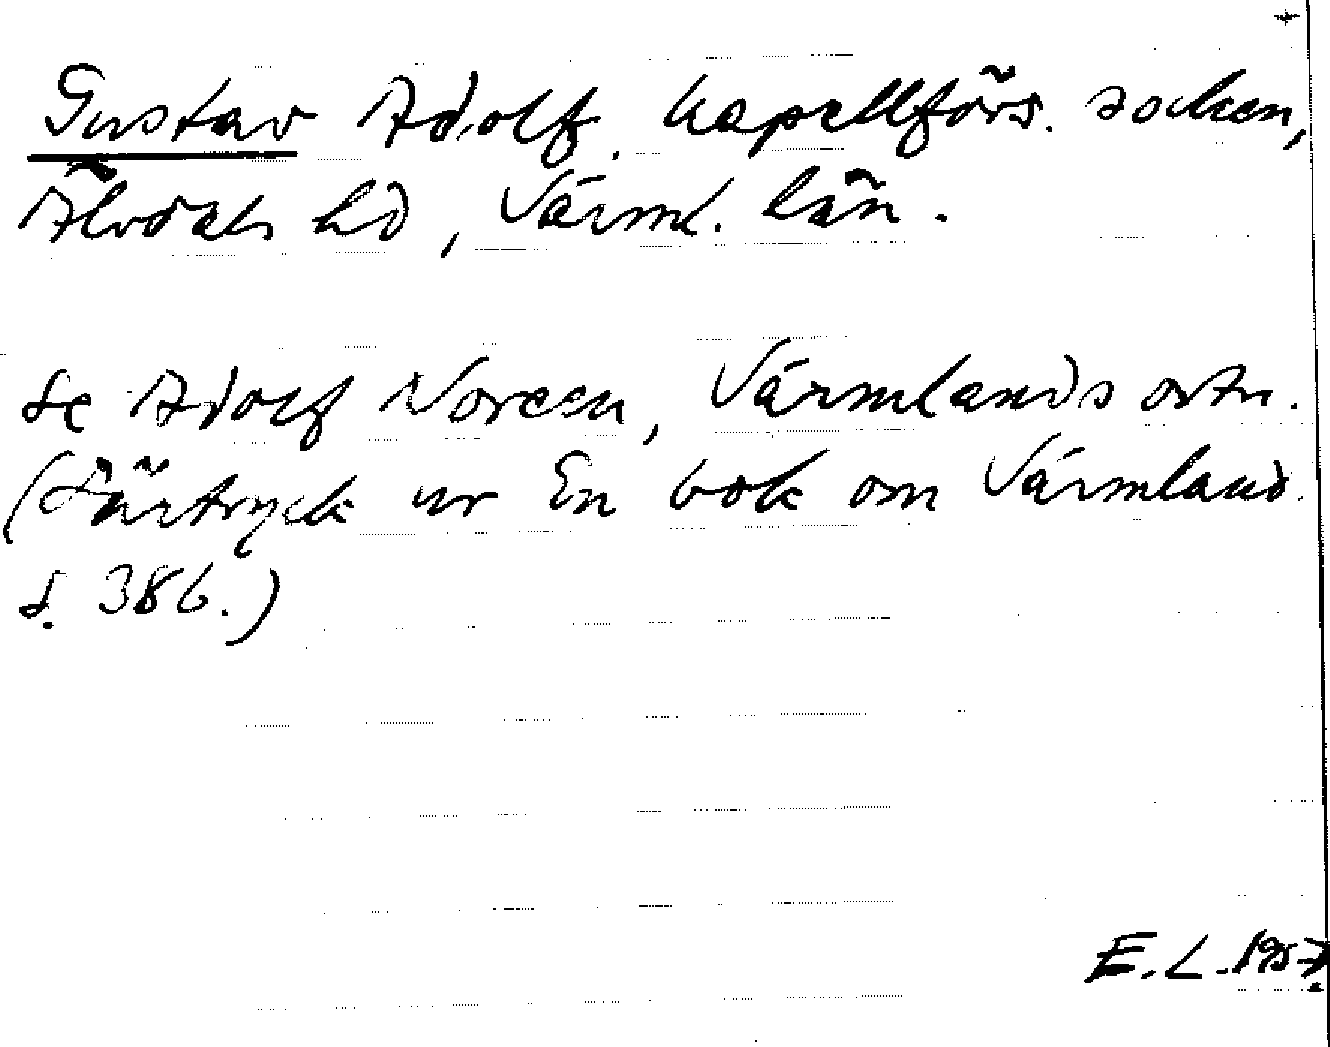 Gustav Adolf, kapellförs. socken,
Älvdals hd, Värml. län.
Se Adolf Noreen, Värmlands ortn.
(Särtryck ur En bok om Värmland.
S. 386.)
E. L. 1957.